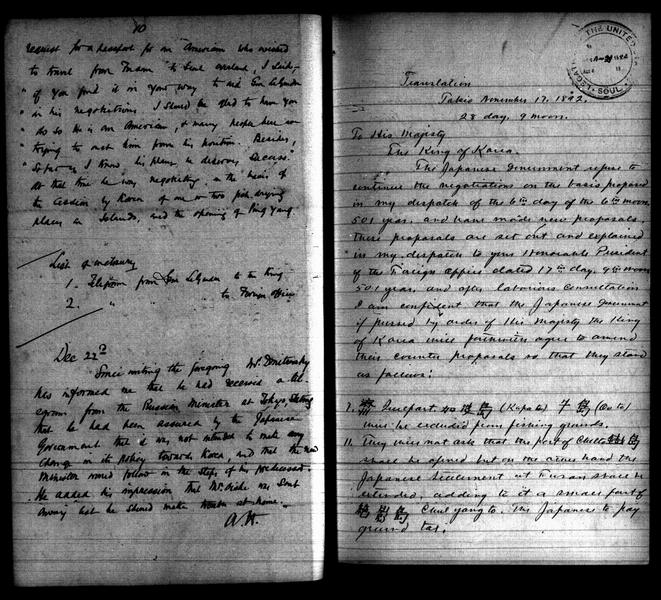 10
request for a passport for an American who wished
to travel from Fusan to Seoul overland,
" of you find it in your way to aid Gen LeGendre
" in his negotiations I should be glad to have you
" do so. He is an American, & many people here are
" trying to oust him from his position. Besides,
so far as I know his plans he deserves success.
At that time he was negotiating on the basis of
the cession by Korea of one or two
places or Islands, and the opening of Ping Yang.
List of
1. Telegram from Gen LeGendre to the King
2. " to Foreign Office
Dec 22d
Since writing the foregoing Mr. Dmitrevsky
has informed me that he had received a tel-
egram from the Russian Minister at Tokyo, stating
that he had been assured by the Japanese
Government that it was not intended to make any
change in its policy towards Korea, and that the new
Minister would follow in the steps of his predecessor.
He added his impression that Mr. Oishi was sent
away lest he should make trouble at home.
A.H.
THE UNITED
SOUL
Translation
Tokio November 17, 1892,
28 day, 9 moon.
To His Majesty
The King of Korea.
The Japanese Government refuse to
continue the negotiations on the basis proposed
in my dispatch of the 6th day of the 6th moon,
501 year, and have made new proposals,
these proposals are set out and explained
in my dispatch to your Honorable President
of the Foreign Office dated 17th day, 9th moon
501 year, and after laborious consultation
I am confident that the Japanese Government
if pressed by order of His Majesty the King
of Korea will furthermore agree to amend
their counter proposals so that they stand
as follows:
1. Quelpart, 島 (Kapa to) 島 (Oo to)
will be excluded from fishing grounds.
11. They will not ask that the port of 島
shall be opened but on the other hand the
Japanese Settlement at Fusan shall be
extended, adding to it a small part of
島 Chul yong to. The Japanese to pay
ground tax.